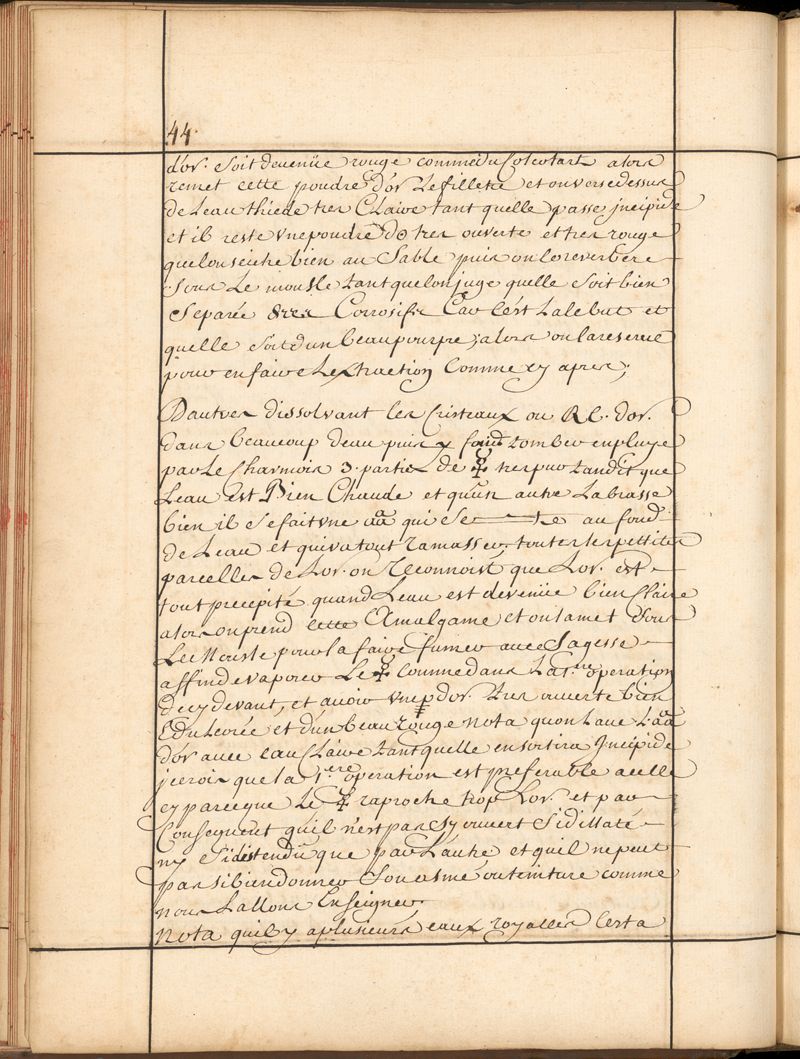 44.
d'or. soit devenüe rouge comme du Colcotart alors
remet cette poudre d'or Le filletre et on verse dessus
de Leau thiede tres Claire tant quelle passe jncipide
et il reste vne poudre d☉ tres ouverte et tres rouge
que lon seiche bien au Sable puis on lo reverbere
sous Le moufle tant que lon juge quelle soit bien
Separée des Corrosifs Car cest La le but et
quelle soit dun beau pourpre, alors on la reserve
pour en faire Lextraction Comme cy apres;
Dautres dissolvant les Cristeaux ou d'or.
dans beaucoup deau puis y font tomber en pluye
par Le Charmois 3. parties de ☿ tres pur tandit que
Leau est Bien Chaude et quun autre La brasse
bien il se fait vne aã qui se au fond
de Leau et qui va tout ramasser toutes les pettites
parcelles de Lor. on reconnoist que Lor. est
tout precepité quand Leau est devenüe bien Claire
alors on prend cette Amalgame et on la met sous
Le pour la faire fumer avec Sagesse
affin devaporer Le ☿ comme dans La 1.re operation
de cy devant, et avoir vne d'or. tres ouverte bien
Edulcorée et dun beau rouge nota quon Lave L'aã
dor avec eau Claire tant quelle en sortira Jncipide
je crois que la 1.ere operation est preferable a celle
cy parceque Le ☿ raproche trop Lor. et par
Consequent quil nest pas sy ouvert si dillaté
ny si distendû que par L'autre et quil ne peut
pas si bien donner son ou teinture comme
nous Lallons Enseigner.
Nota quil y a plusieurs eaux royalles Certa